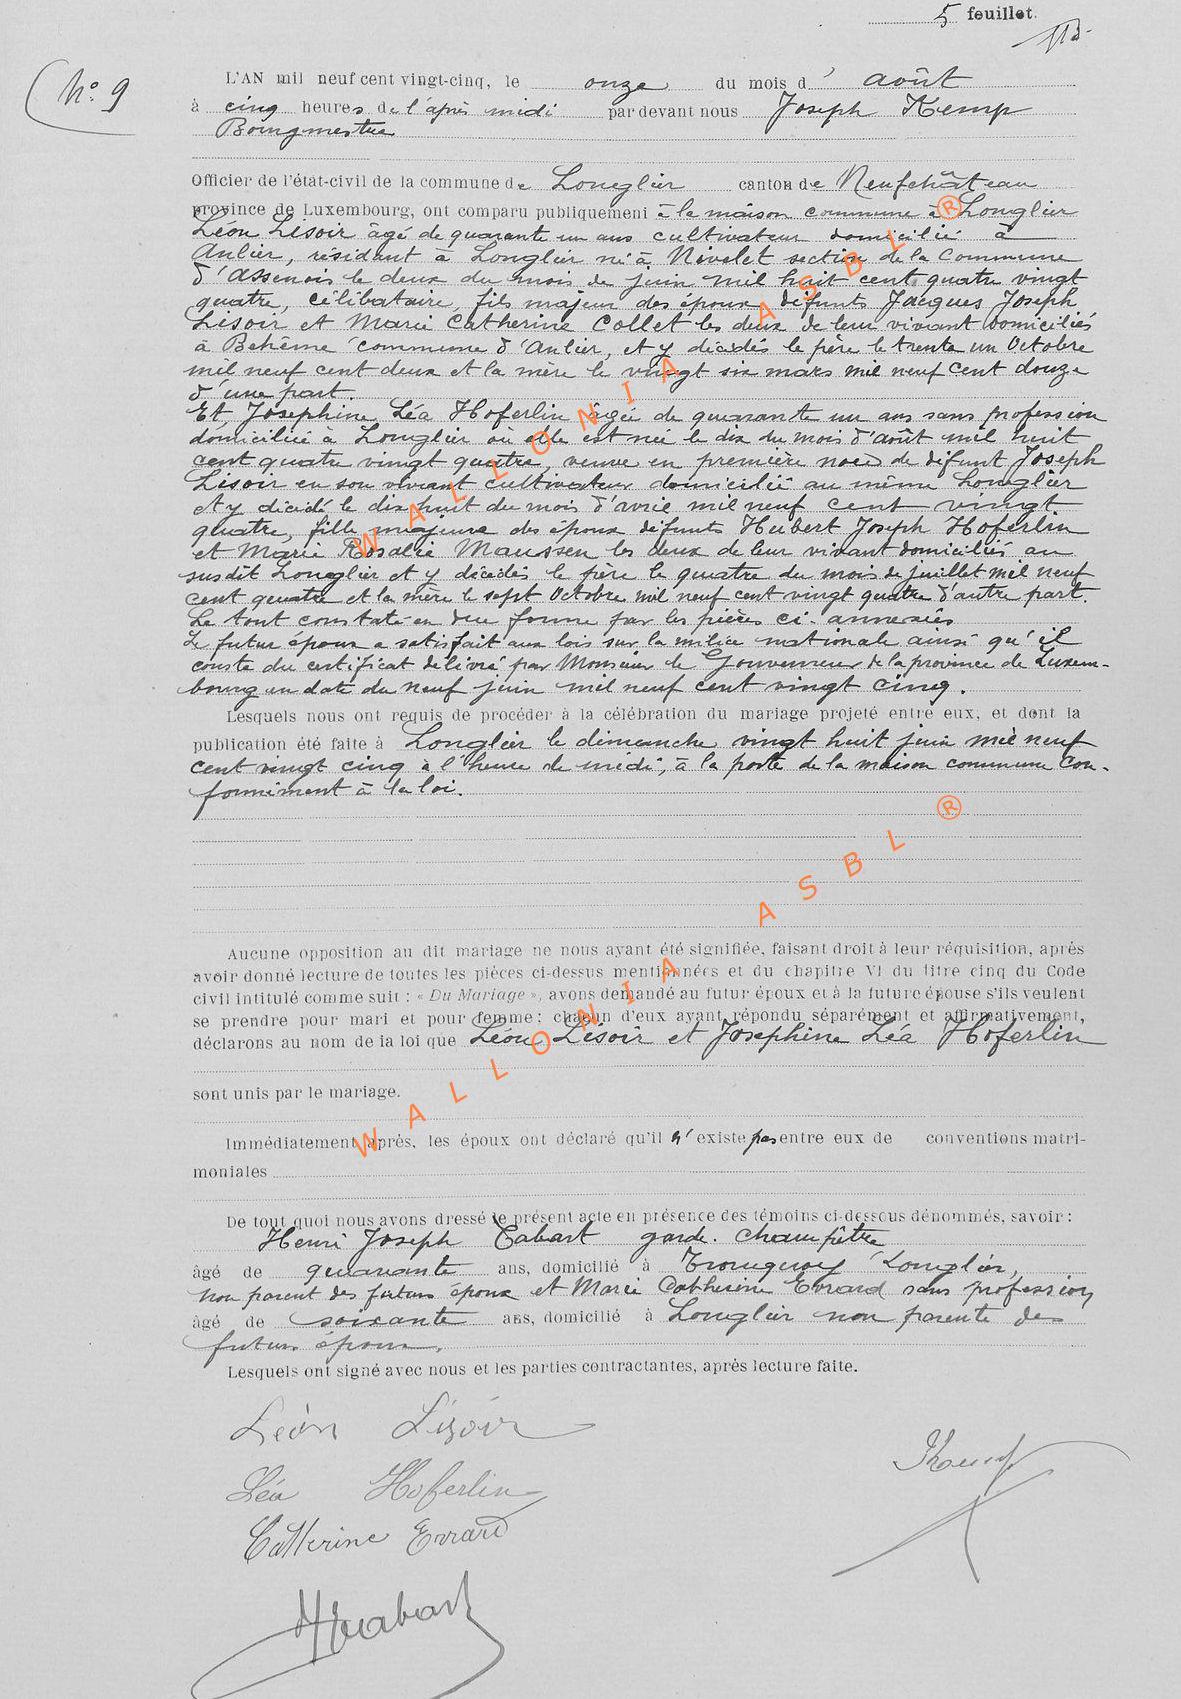 5 feuillet.
N° 9
L'AN mil neuf cent vingt-cinq, le onze du mois d' août
à cinq heures de l'après midi par devant nous Joseph Kemp
Bourgmestre
Officier de l'état-civil de la commune de Longlier canton de Neufchâteau
province de Luxembourg, ont comparu publiquement à la maison commune à Longlier
Léon Lisoir âgé de quarante un ans cultivateur domicilié à
Anlier, résidant à Longlier né à Nivelet section de la Commune
d'Assenois le deux du mois de juin mil huit cent quatre vingt
quatre, célibataire, fils majeur des époux défunts Jacques Joseph
Lisoir et Marie Catherine Collet les deux de leur vivant domiciliés
à Behême commune d'Anlier, et y décédés le père le trente un Octobre
mil neuf cent deux et la mère le vingt six mars mil neuf cent douze
d'une part.
Et, Josephine Léa Hoferlin âgée de quarante un ans sans profession
domiciliée à Longlier où elle est née le dix du mois d'août mil huit
cent quatre vingt quatre, veuve en première noce de défunt Joseph
Lisoir en son vivant cultivateur domicilié au même Longlier
et y décédé le dix huit du mois d'avril mil neuf cent vingt
quatre, fille majeure des époux défunts Hubert Joseph Hoferlin
et Marie Rosalie Maussen les deux de leur vivant domiciliés au
susdit Longlier et y décédés le père le quatre du mois de juillet mil neuf
cent quatre et la mère le sept Octobre mil neuf cent vingt quatre d'autre part.
Le tout constaté en due forme par les pièces ci-annexées
Le futur époux a satisfait aux lois sur la milice nationale ainsi qu'il
conste du certificat délivré par Monsieur le Gouverneur de la province de Luxem-
bourg en date du neuf juin mil neuf cent vingt cinq.
Lesquels nous ont requis de procéder à la célébration du mariage projeté entre eux, et dont la
publication été faite à Longlier le dimanche vingt huit juin mil neuf
cent vingt cinq à l'heure de midi, à la porte de la maison commune con-
formément à la loi.
Aucune opposition au dit mariage ne nous ayant été signifiée, faisant droit à leur réquisition, après
avoir donné lecture de toutes les pièces ci-dessus mentionnées et du chapitre VI du titre cinq du Code
civil intitulé comme suit : « Du Mariage », avons demandé au futur époux et à la future épouse s'ils veulent
se prendre pour mari et pour femme : chacun d'eux ayant répondu séparément et affirmativement,
déclarons au nom de la loi que Léon Lisoir et Josephine Léa Hoferlin
sont unis par le mariage.
Immédiatement après, les époux ont déclaré qu'il n'existe pas entre eux de conventions matri-
moniales
De tout quoi nous avons dressé le présent acte en présence des témoins ci-dessous dénommés, savoir :
Henri Joseph Tabart garde-champêtre
âgé de quarante ans, domicilié à Tronquoy Longlier,
non parent des futurs époux et Marie Catherine Evrard sans profession
âgé de soixante ans, domicilié à Longlier non parente des
futurs époux.
Lesquels ont signé avec nous et les parties contractantes, après lecture faite.
Léon Lisoir
Kemp
Léa Hoferlin
Catherine Evrard
HTabart
WALLONIA ASBL ®
WALLONIA ASBL ®